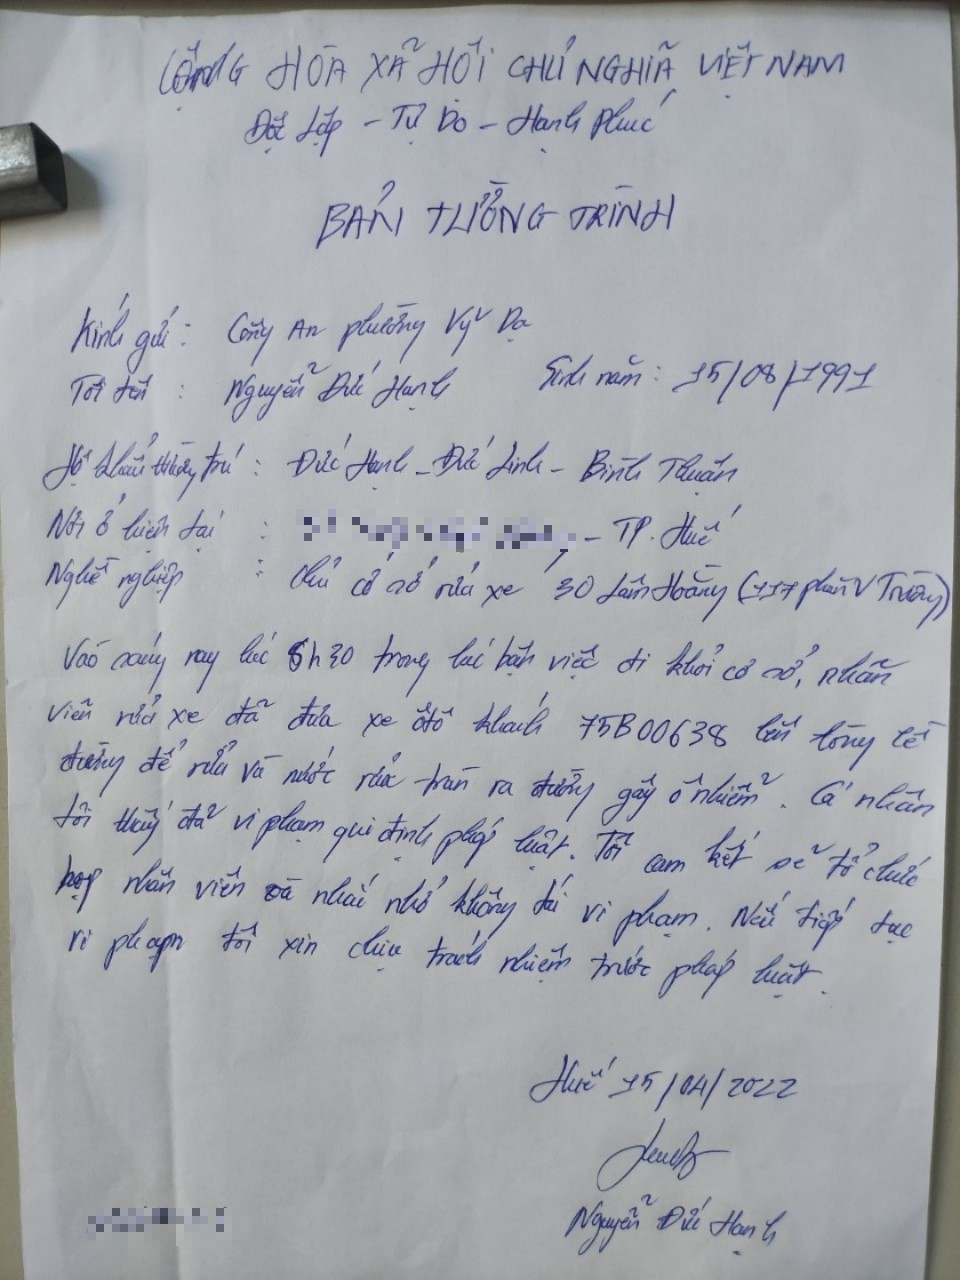 CỘNG HÒA XÃ HỘI CHỦ NGHĨA VIỆT NAM
Độc Lập - Tự Do - Hạnh Phúc
BẢN TƯỜNG TRÌNH
Kính gửi : Công An phường Vỹ Dạ
Tôi tên : Nguyễn Đức Hạnh Sinh năm : 15/08/1991
Hộ khẩu thường trú : Đức Hạnh - Đức Linh - Bình Thuận
Nơi ở hiện tại : - TP. Huế
Nghề nghiệp : Chủ cơ sở rửa xe 30 Lâm Hoằng (117 phan V Trường)
Vào sáng nay lúc 6h30 trong lúc bận việc đi khỏi cơ sở, nhân
viên rửa xe đã đưa xe ôtô khách 75B00638 lên lòng lề
đường để rửa và nước rửa tràn ra đường gây ô nhiễm. Cá nhân
tôi thấy đã vi phạm qui định pháp luật. Tôi cam kết sẽ tổ chức
họp nhân viên và nhắc nhở không tái vi phạm. Nếu tiếp tục
vi phạm tôi xin chịu trách nhiệm trước pháp luật.
Huế 15/04/2022
Nguyễn Đức Hạnh